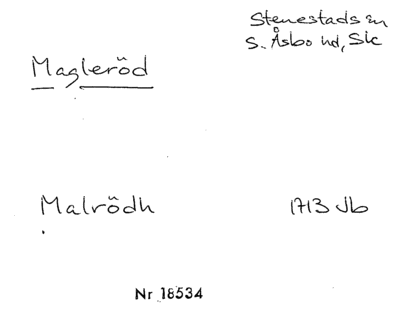 Stenestads sn
S. Åsbo hd, Sk
Magleröd
Malrödh 1713 Jb
Nr 18534